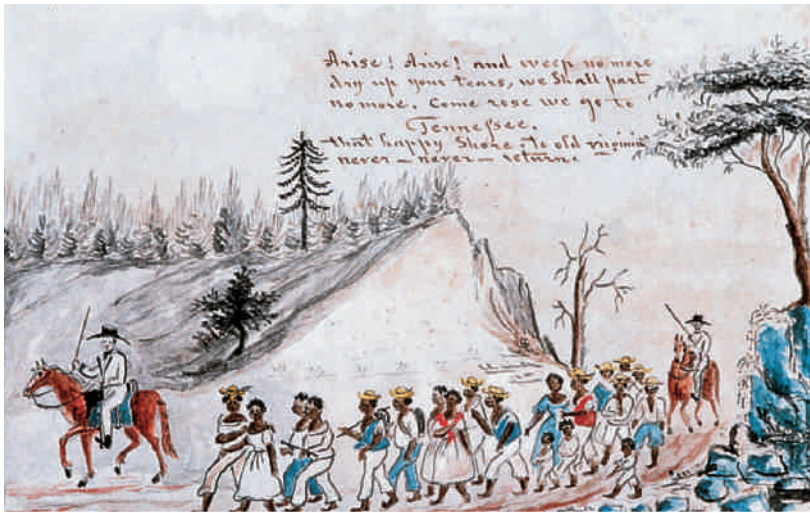 Arise! Arise! and weep no more
dry up your tears, we shall part
no more. Come rose we go to
Tennessee,
that happy shore. to old virginia
never — never — return.